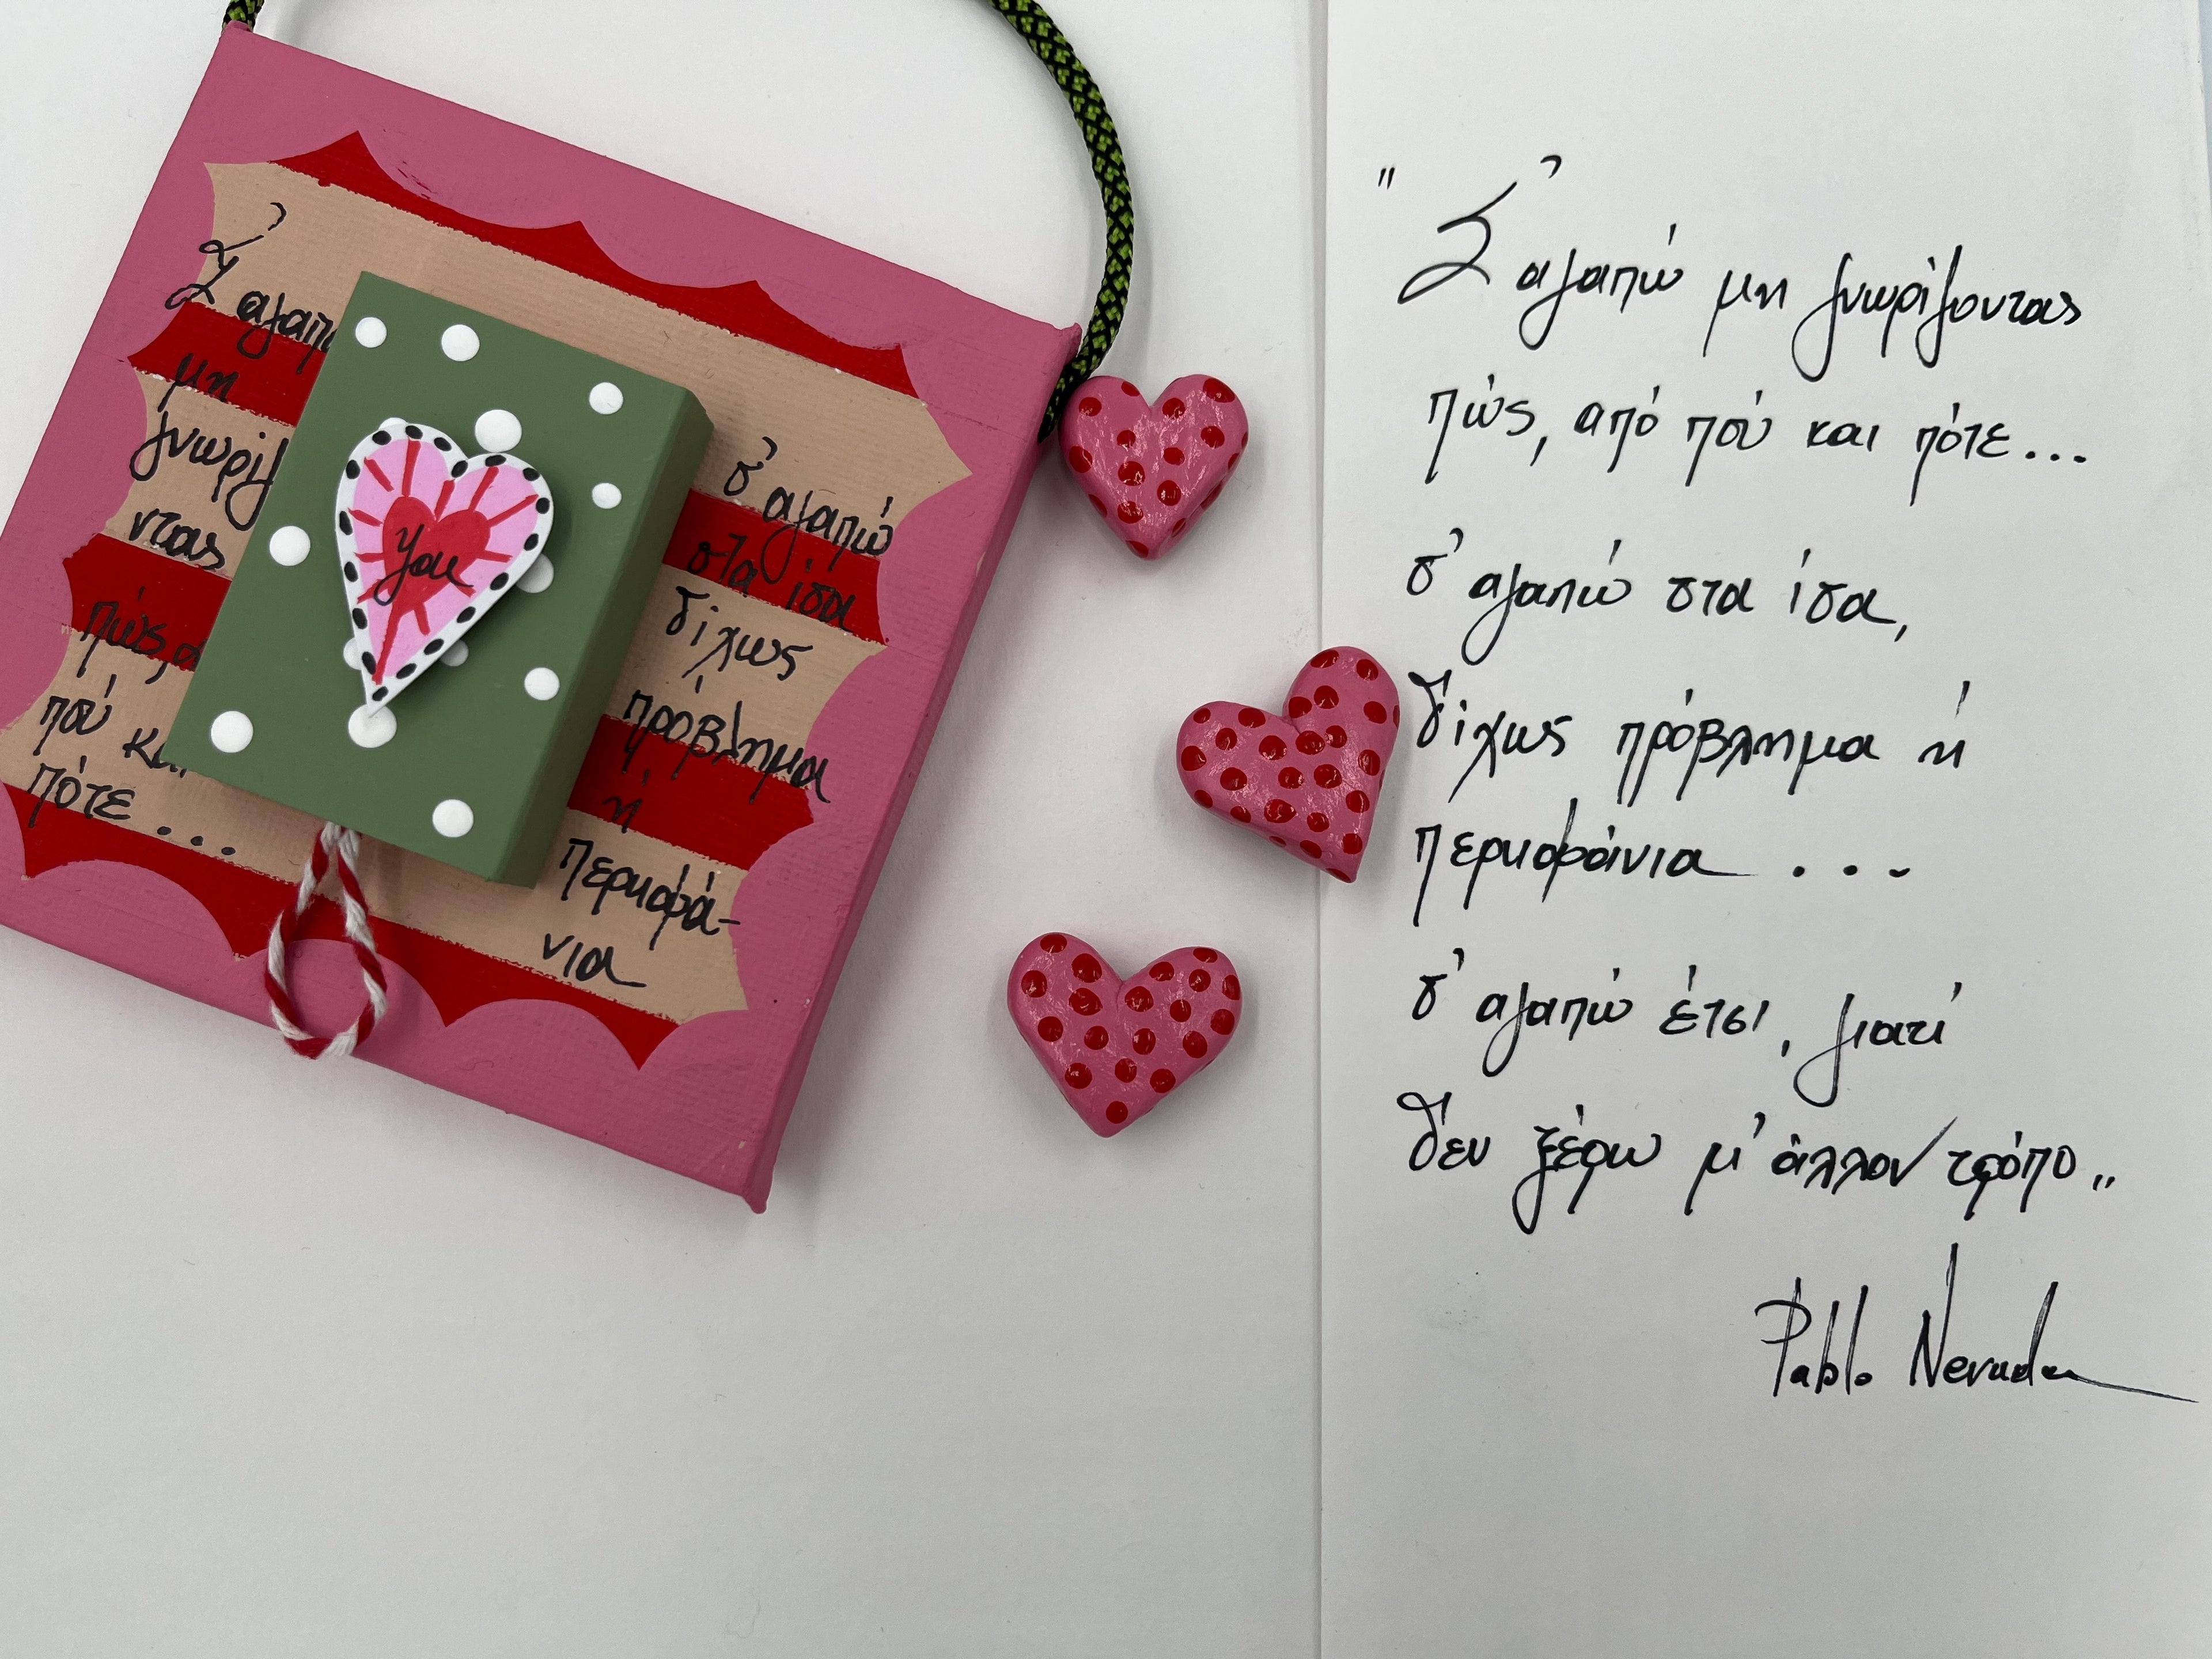 Σ' αγαπ
μη
γνωρίζ
ντας
πώς,
πού και
πότε...
You
σ' αγαπώ
στα ίσα
δίχως
πρόβλημα
ή
περηφά-
νια
"Σ' αγαπώ μη γνωρίζοντας
πώς, από πού και πότε...
σ' αγαπώ στα ίσα,
δίχως πρόβλημα ή
περηφάνια...
σ' αγαπώ έτσι, γιατί
δεν ξέρω μ' άλλον τρόπο„
Pablo Neruda